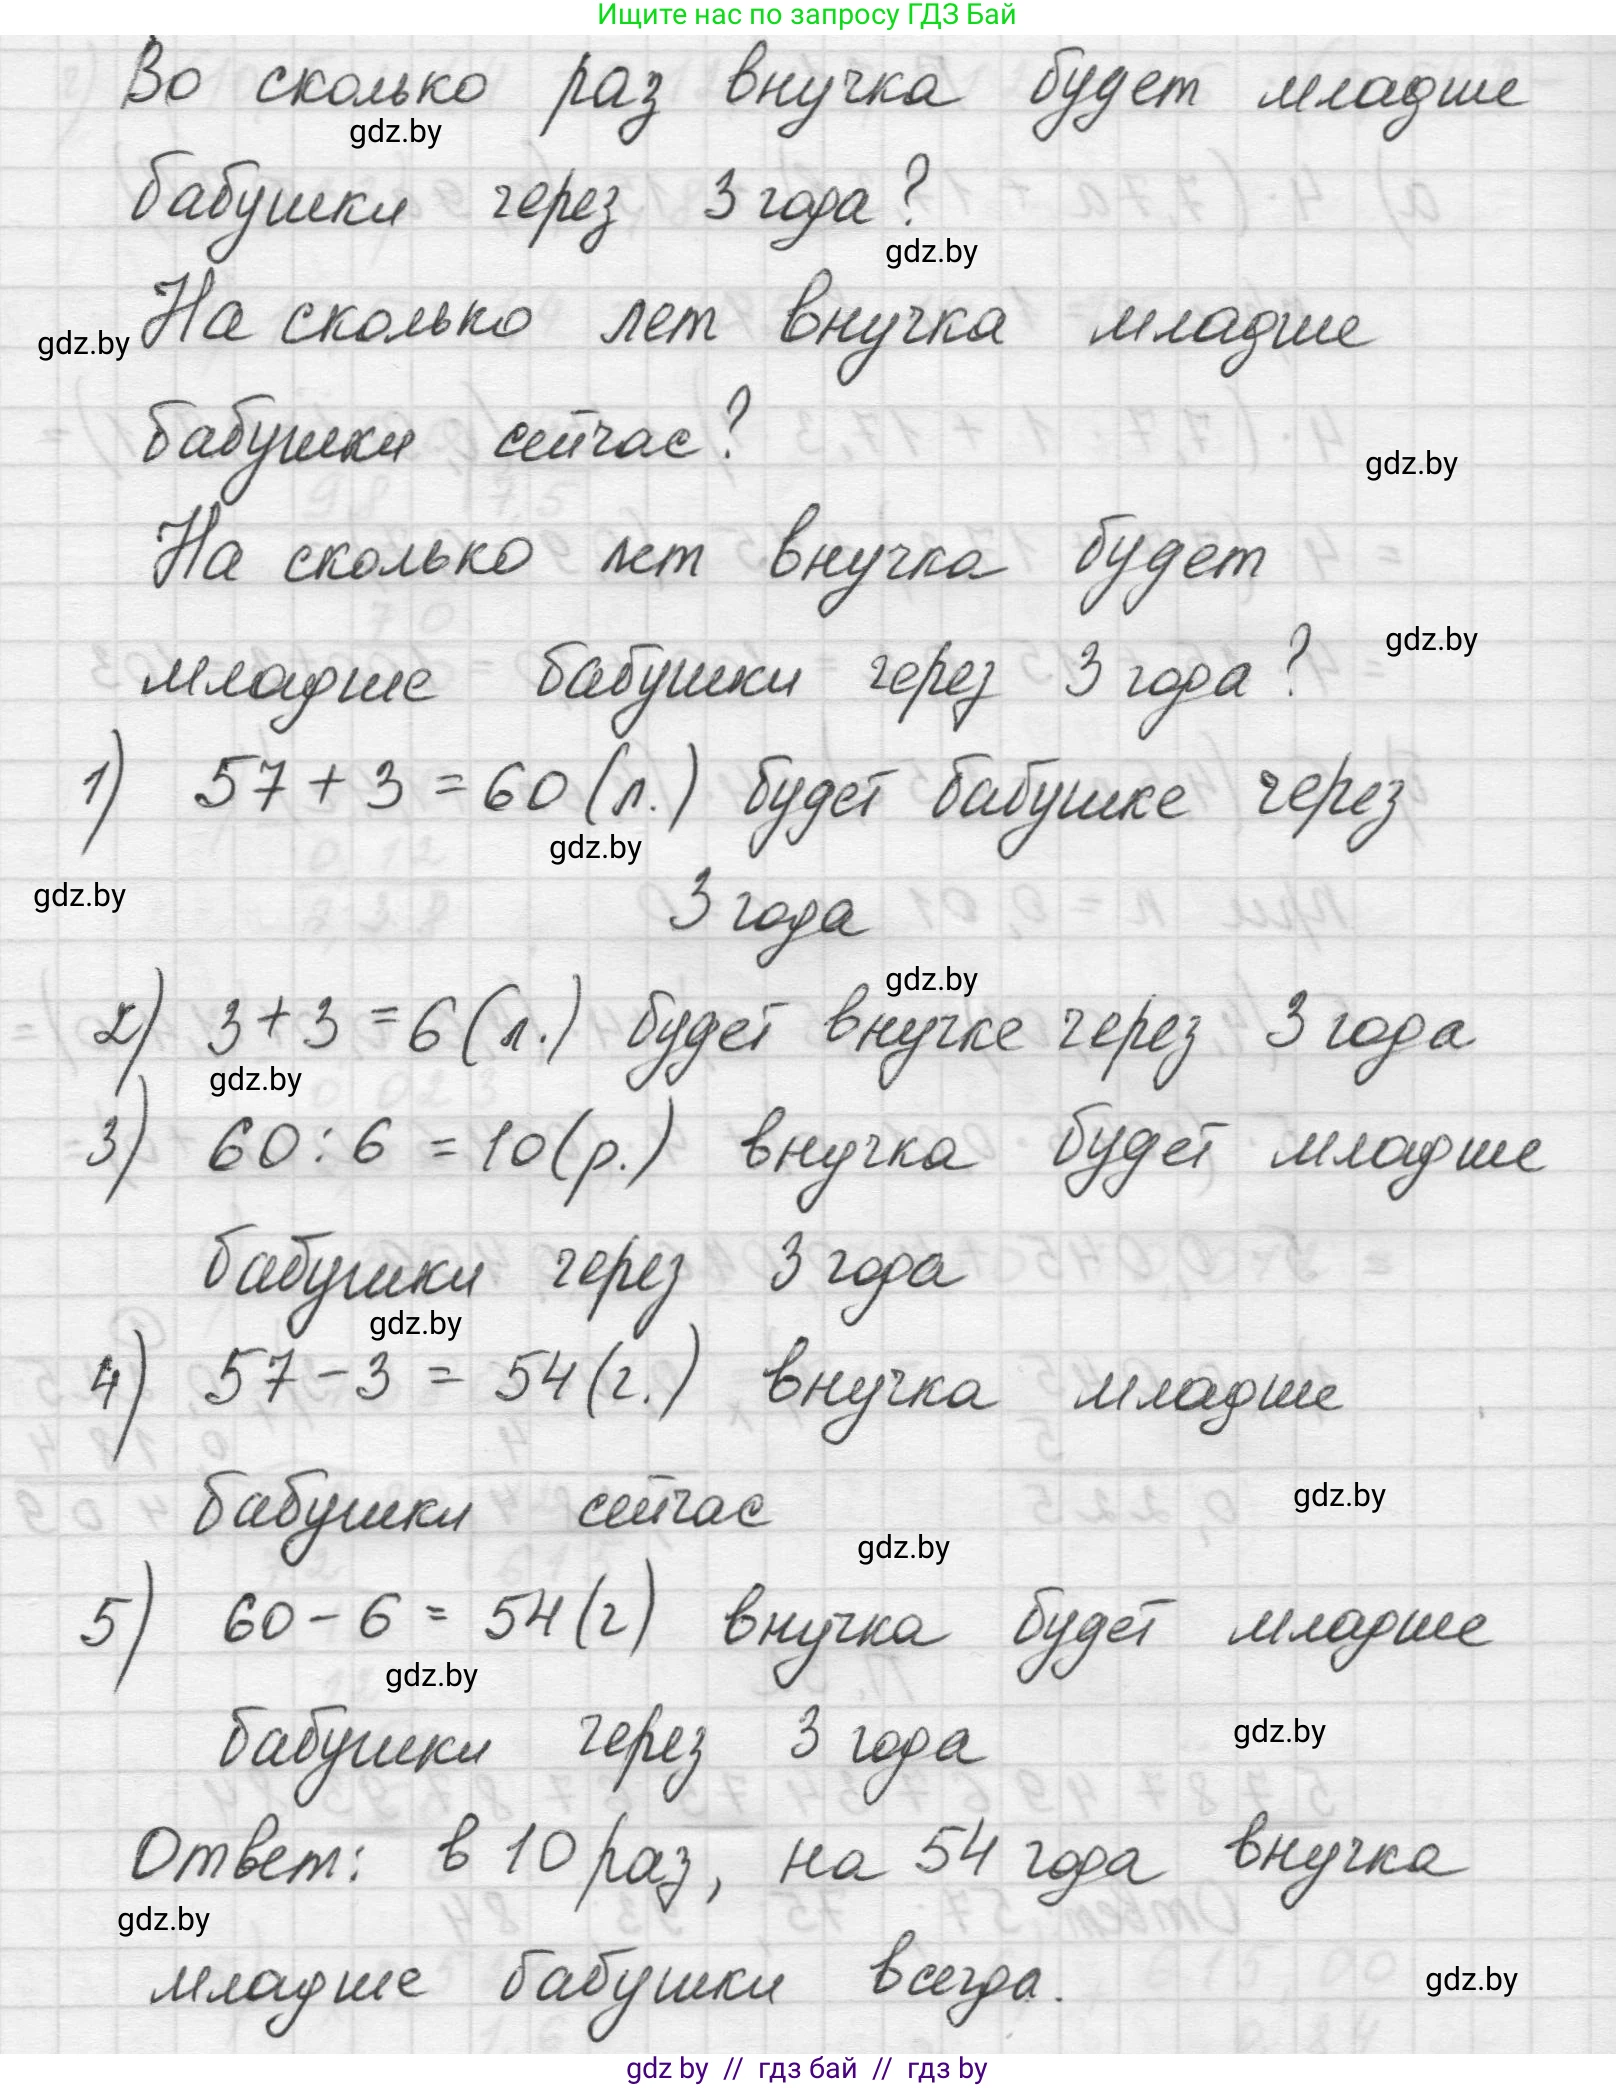 Ищите нас по запросу ГДЗ Бай
Во сколько раз внучка будет младше
gdz.by
бабушки через 3 года?
gdz.by
На сколько лет внучка младше
gdz.by
бабушки сейчас?
gdz.by
На сколько лет внучка будет
gdz.by
младше бабушки через 3 года?
1) 57 + 3 = 60 (л.) будет бабушке через
gdz.by
gdz.by
3 года
gdz.by
2) 3 + 3 = 6 (л.) будет внучке через 3 года
gdz.by
3) 60 : 6 = 10 (р.) внучка будет младше
бабушки через 3 года
gdz.by
4) 57 - 3 = 54 (г.) внучка младше
бабушки сейчас
gdz.by
gdz.by
5) 60 - 6 = 54 (г) внучка будет младше
gdz.by
бабушки через 3 года
gdz.by
Ответ: в 10 раз, на 54 года внучка
gdz.by
младше бабушки всегда.
gdz.by
gdz by // гдз бай // gdz by